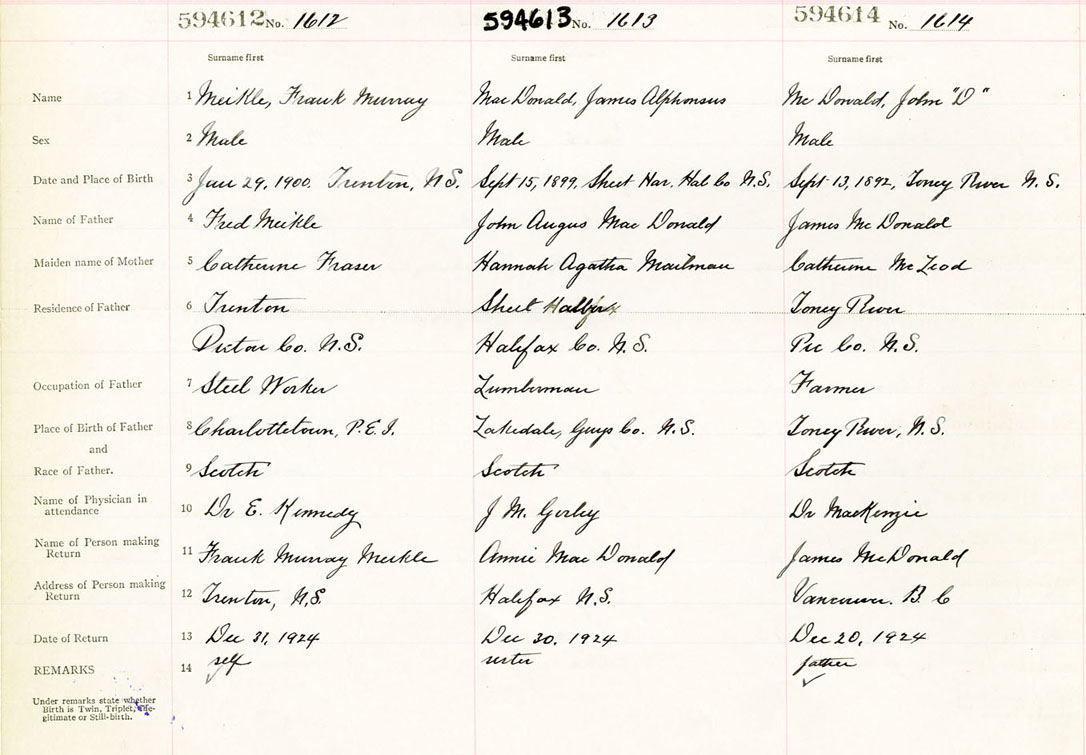 594612 No. 1612 594613 No. 1613 594614 No. 1614
Surname first Surname first Surname first
Name 1 Meikle, Frank Murray Mac Donald, James Alphonsus Mc Donald, John "D"
Sex 2 Male Male Male
Date and Place of Birth 3 Jan 29, 1900. Trenton, N.S. Sept 15, 1899, Sheet Har. Hal Co N.S. Sept 13, 1892, Toney River N.S.
Name of Father 4 Fred Meikle John Angus Mac Donald James Mc Donald
Maiden name of Mother 5 Catherine Fraser Hannah Agatha Mailman Catherine McLeod
Residence of Father 6 Trenton Sheet Toney River
Pictou Co. N.S. Halifax Co. N.S. Pic Co. N.S.
Occupation of Father 7 Steel Worker Lumberman Farmer
Place of Birth of Father 8 Charlottetown, P.E.I. Lakedale, Guys Co. N.S. Toney River, N.S.
and
Race of Father. 9 Scotch Scotch Scotch
Name of Physician in
attendance 10 Dr E. Kennedy J M. Gorley Dr MacKenzie
Name of Person making
Return 11 Frank Murray Meikle Annie Mac Donald James McDonald
Address of Person making
Return 12 Trenton, N.S. Halifax N.S. Vancouver. B.C
Date of Return 13 Dec 31, 1924 Dec 30, 1924 Dec 20, 1924
REMARKS 14 self sister father
Under remarks state whether
Birth is Twin, Triplet, Ille-
gitimate or Still-birth.